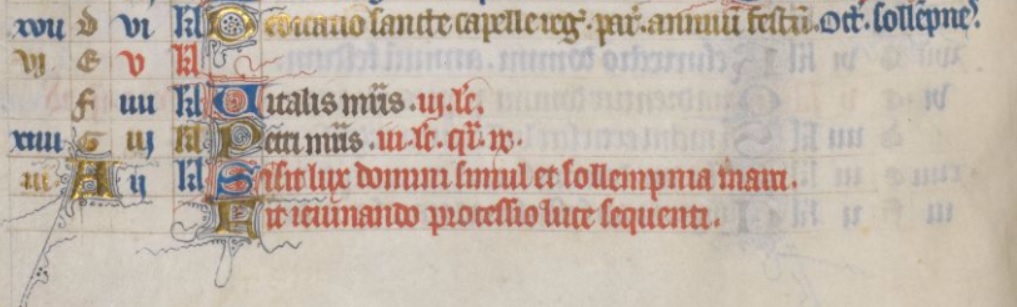 xvii d vi kl Dedicatio sancte capelle reg̃. par̃. annuū festū. Oct̃. sollẽpne᷒.
vj e v kl
f iiii kl Vitalis m̃ris. iij. lc̃.
xiiii g iij kl Petri m̃ris. iii. lc̃. qñ. ix.
iii A ij kl Si sit lux domini simul et sollempnia marci.
Erit ieiunando processio luce sequenti.